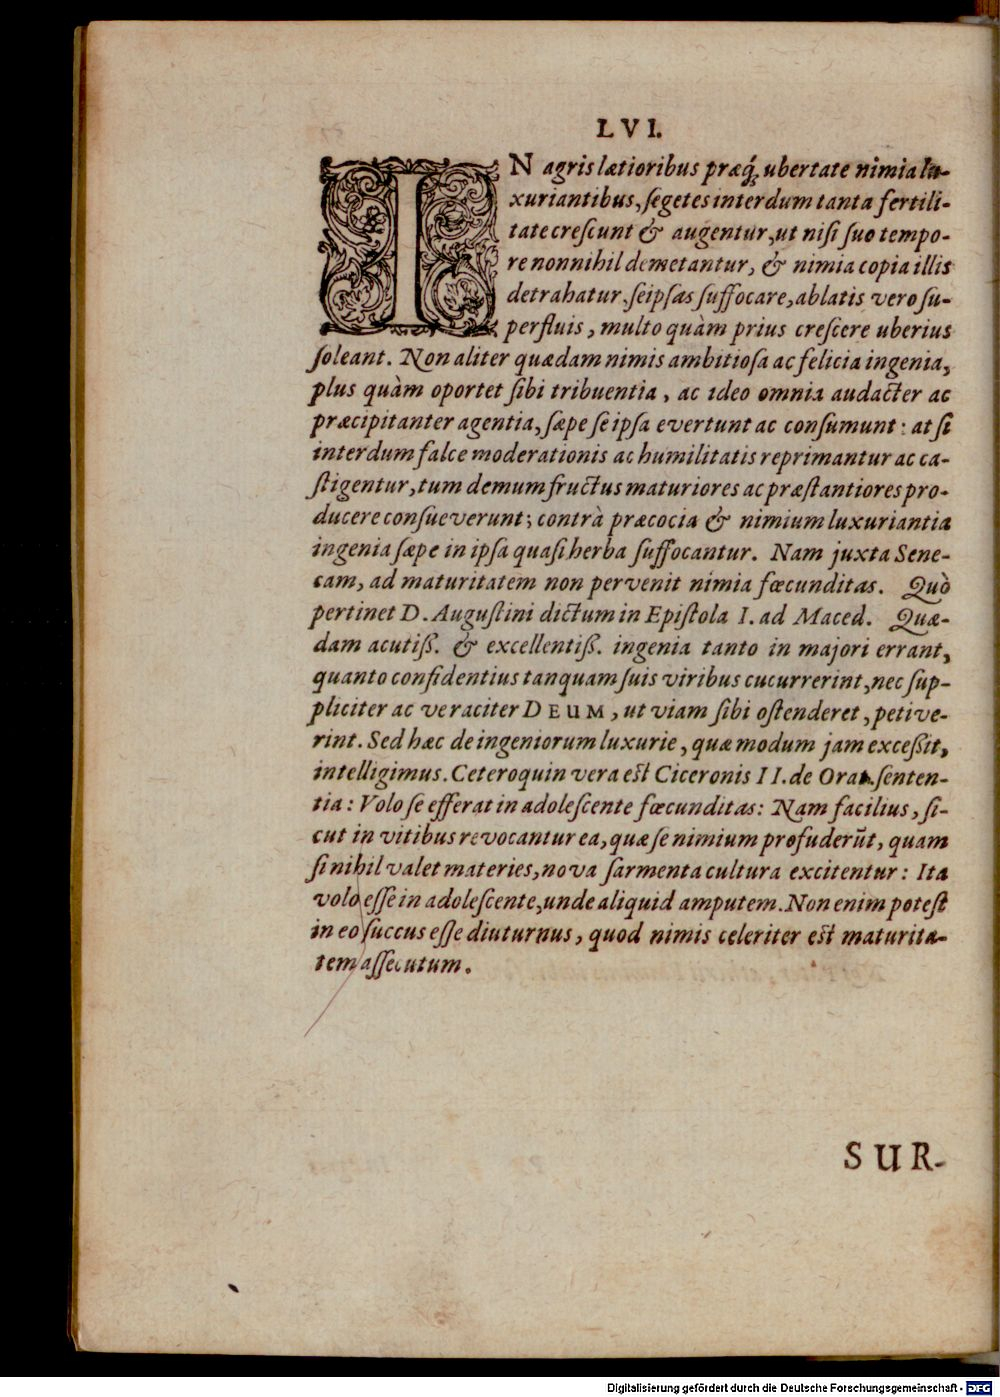 LVI.
IN agris lætioribus præq́; ubertate nimia lu-
xuriantibus, ſegetes interdum tanta fertili-
tate creſcunt & augentur, ut niſi ſuo tempo-
re nonnihil demetantur, & nimia copia illis
detrahatur, ſeipſas ſuffocare, ablatis vero ſu-
perfluis, multo quàm prius creſcere uberius
ſoleant. Non aliter quædam nimis ambitioſa ac felicia ingenia,
plus quàm oportet ſibi tribuentia, ac ideo omnia audacter ac
præcipitanter agentia, ſæpe ſe ipſa evertunt ac conſumunt: at ſi
interdum falce moderationis ac humilitatis reprimantur ac ca-
ſtigentur, tum demum fructus maturiores ac præſtantiores pro-
ducere conſueverunt; contrà præcocia & nimium luxuriantia
ingenia ſæpe in ipſa quaſi herba ſuffocantur. Nam juxta Sene-
cam, ad maturitatem non pervenit nimia fœcunditas. Quò
pertinet D. Auguſtini dictum in Epiſtola I. ad Maced. Quæ-
dam acutiß. & excellentiß. ingenia tanto in majori errant,
quanto confidentius tanquam ſuis viribus cucurrerint, nec ſup-
pliciter ac veraciter DEUM, ut viam ſibi oſtenderet, petive-
rint. Sed hæc de ingeniorum luxurie, quæ modum jam exceßit,
intelligimus. Ceteroquin vera eſt Ciceronis II. de Orat. ſenten-
tia: Volo ſe efferat in adoleſcente fœcunditas: Nam facilius, ſi-
cut in vitibus revocantur ea, quæ ſe nimium profuderūt, quam
ſi nihil valet materies, nova ſarmenta cultura excitentur: Ita
volo eſſe in adoleſcente, unde aliquid amputem. Non enim poteſt
in eo ſuccus eſſe diuturnus, quod nimis celeriter eſt maturita-
tem aſſecutum.
SUR-
Digitalisierung gefördert durch die Deutsche Forschungsgemeinschaft - DFG